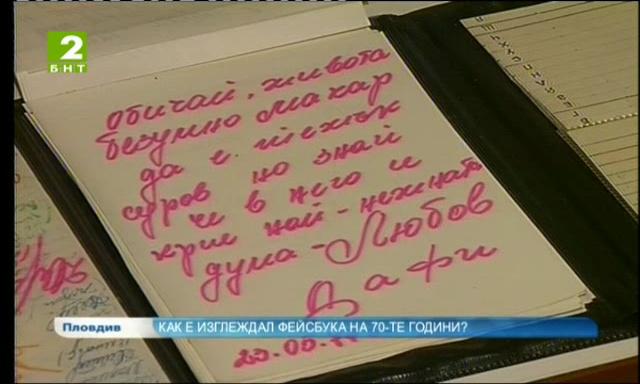 2
БНТ
обичай, живота
безумно макар
да е тежък
суров но знай
че в него и
крие най-нежната
дума - Любов
Дафи
Пловдив
КАК Е ИЗГЛЕЖДАЛ ФЕЙСБУКА НА 70-ТЕ ГОДИНИ?